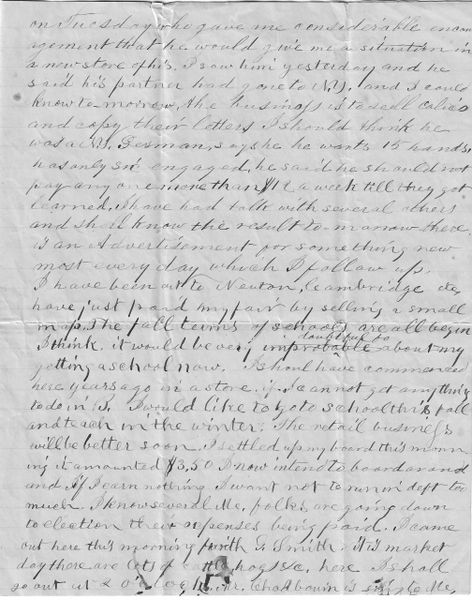 on Tuesday who gave me considerable encour
agement that he would give me a situation in
a new store of his. I saw him yesterday and he
said his partner had gone to N.Y. and I could
know to-morrow, the business is to sell calico
and copy their letters I should think he
was a says he wants 15 hands,
has only six engaged, he said he should not
pay any one more than $12 a week till they got
learned, I have had talk with several others
and shal know the result to-morrow there
is an Advertisement for something new
most every day which I follow up.
I have been out to Newton, Cambridge &c
have just paid my fair by selling a small
map. The fall terms of schools are all begun
doubtful as
I think. it would be very improbable about my
getting a school now. I shoul have commenced
here years ago in a store, if I cannot get anything
to do in B. I would like to go to school this fall
and teach in the winter. The retail business
will be better soon I settled up my board this morn
ing it amounted $3,50 I now intend to board around
and if I earn nothing I want not to run in dept to
much I know several Me. folks are going down
to election their expenses being paid. I came
out here this morning with G. Smith it is market
day there are lots of cattle hogs &c, here I shall
go out at 2 o'clock, Mr. is to Me,